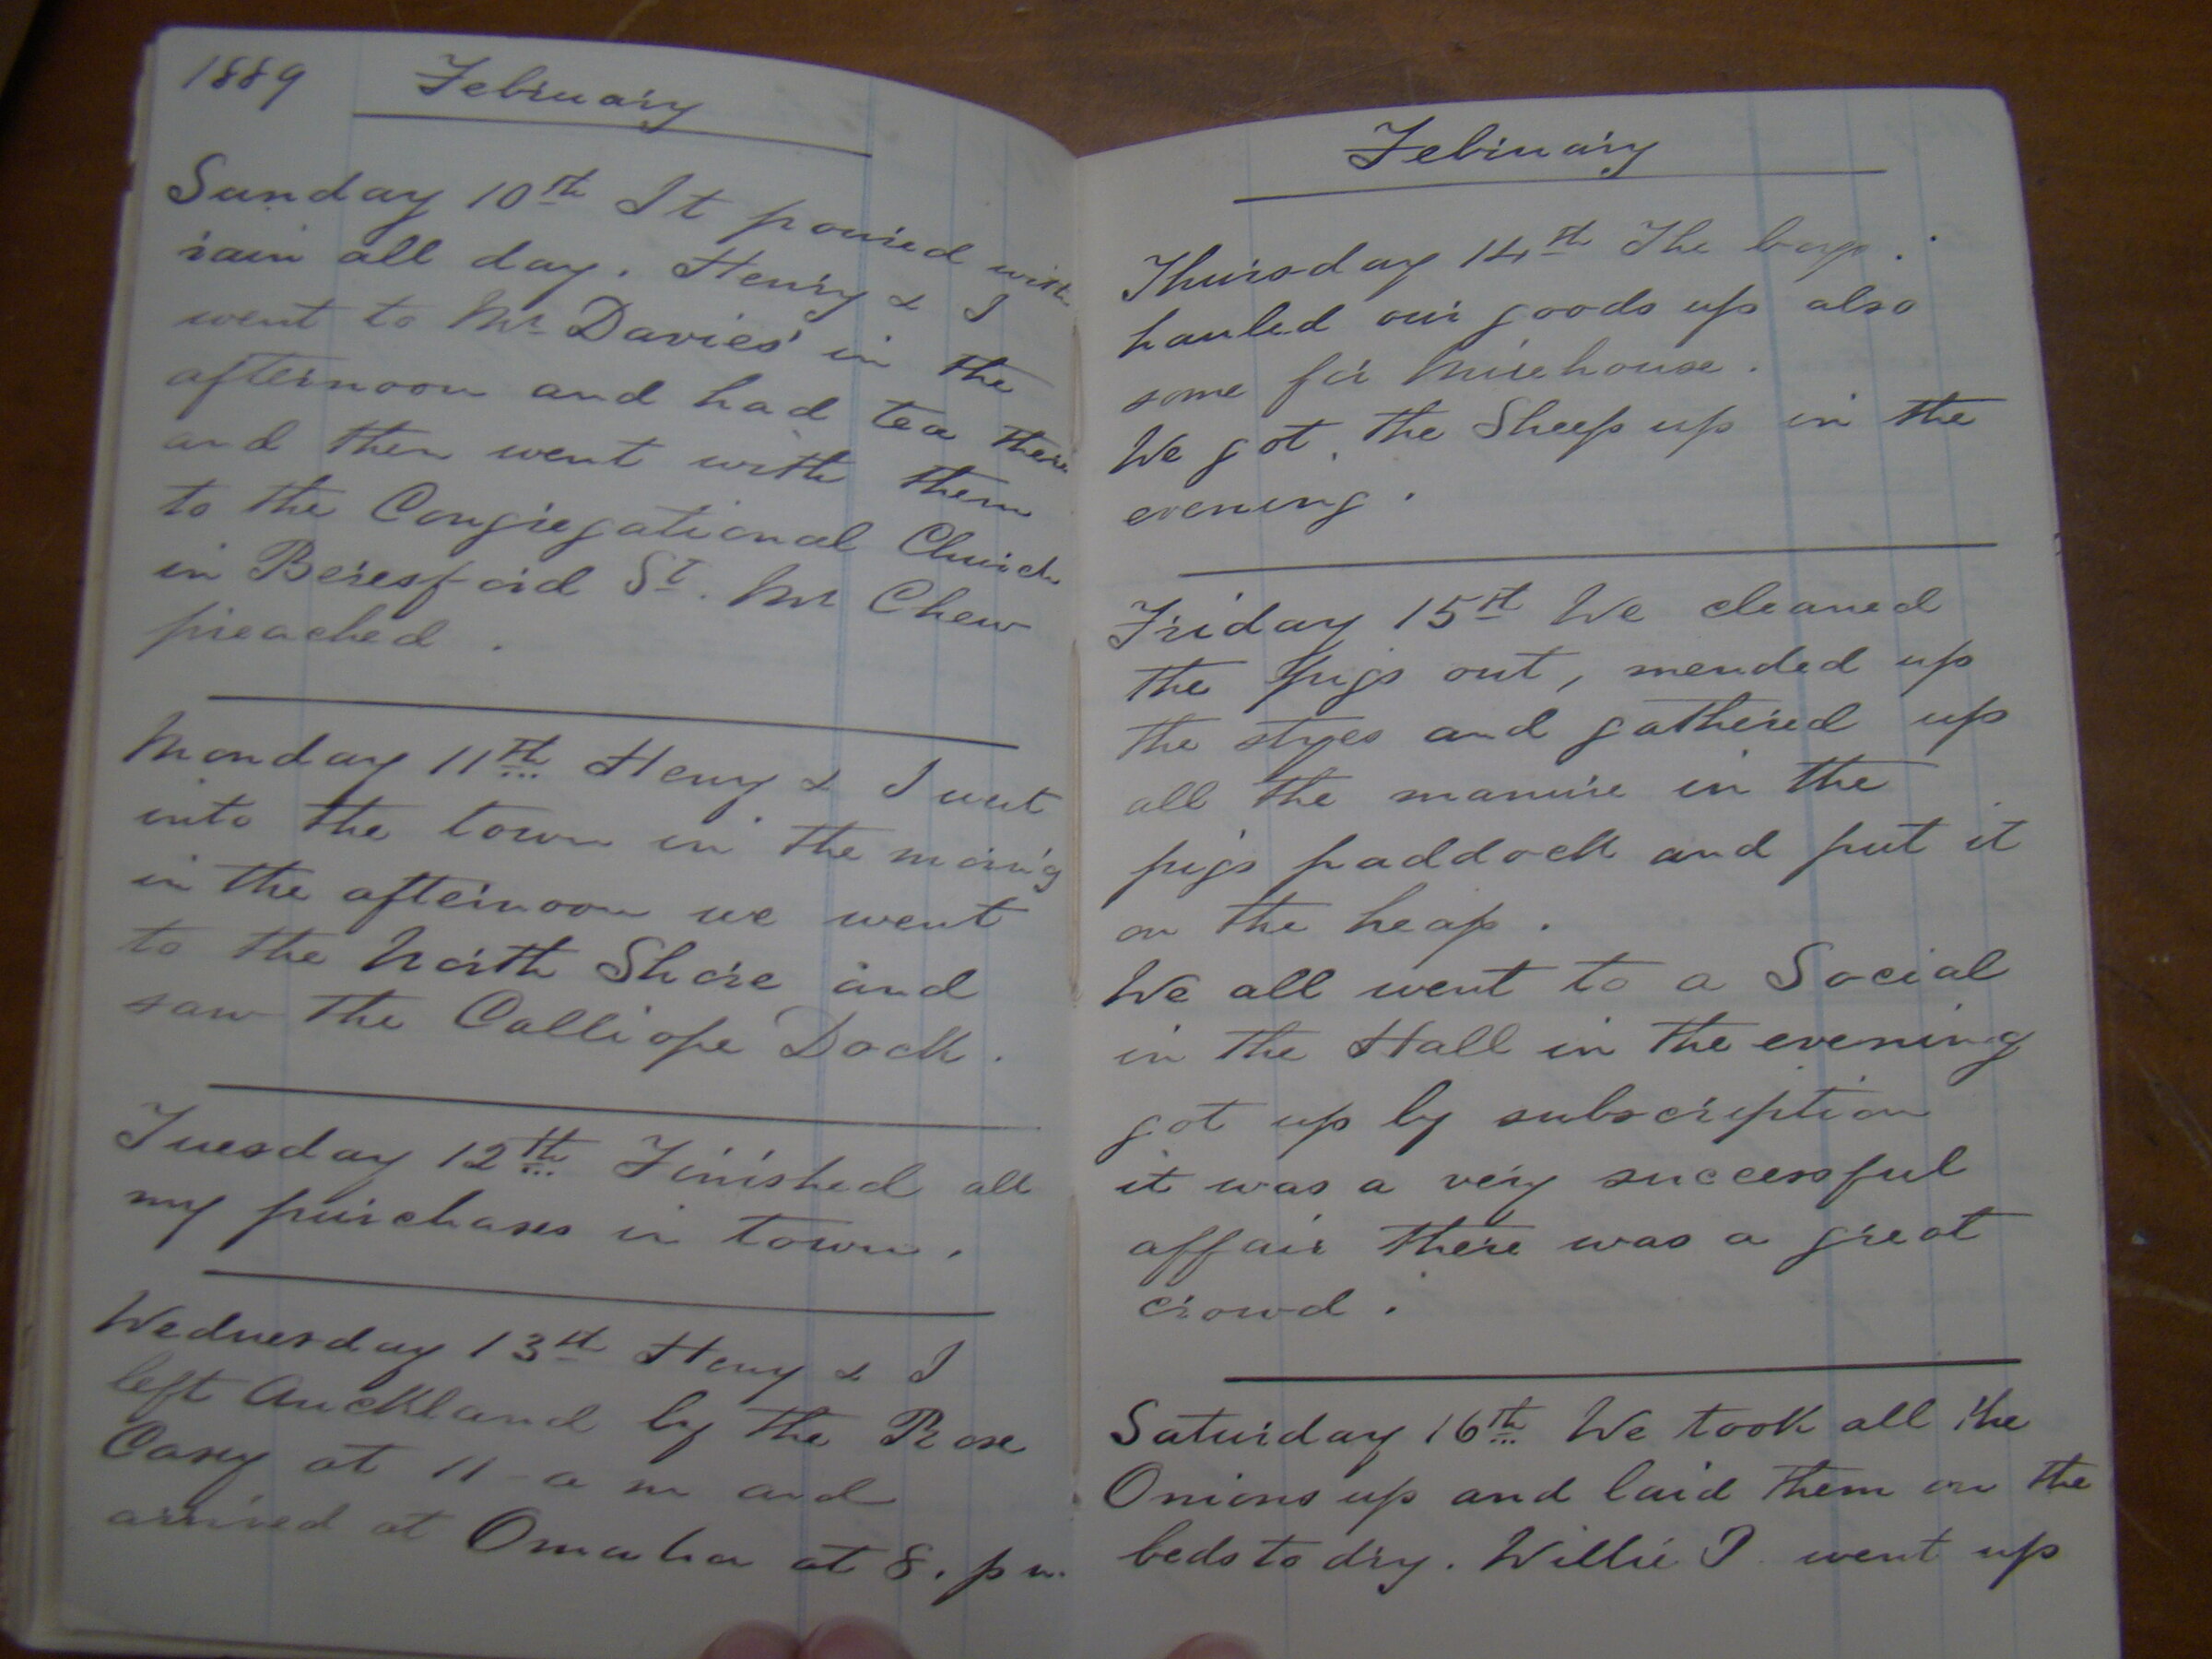 1889 February
Sunday 10th It poured with
rain all day. Henry & I
went to Mr Davies' in the
afternoon and had tea there
and then went with them
to the Congregational Church
in Beresford St. Mr Chew
preached.
Monday 11th Henry & I went
into the town in the morning
in the afternoon we went
to the North Shore and
saw the Calliope Dock.
Tuesday 12th Finished all
my purchases in town.
Wednesday 13th Henry & I
left Auckland by the Rose
Casey at 11 a m and
arrived at Omaha at 8. pm.
February
Thursday 14th The boys.
hauled our goods up also
some for Mirehouse.
We got the Sheep up in the
evening.
Friday 15th We cleaned
the pigs out, mended up
the styes and gathered up
all the manure in the
pigs paddock and put it
on the heap.
We all went to a Social
in the Hall in the evening
got up by subscription
it was a very successful
affair there was a great
crowd.
Saturday 16th We took all the
Onions up and laid them on the
beds to dry. Willie J. went up